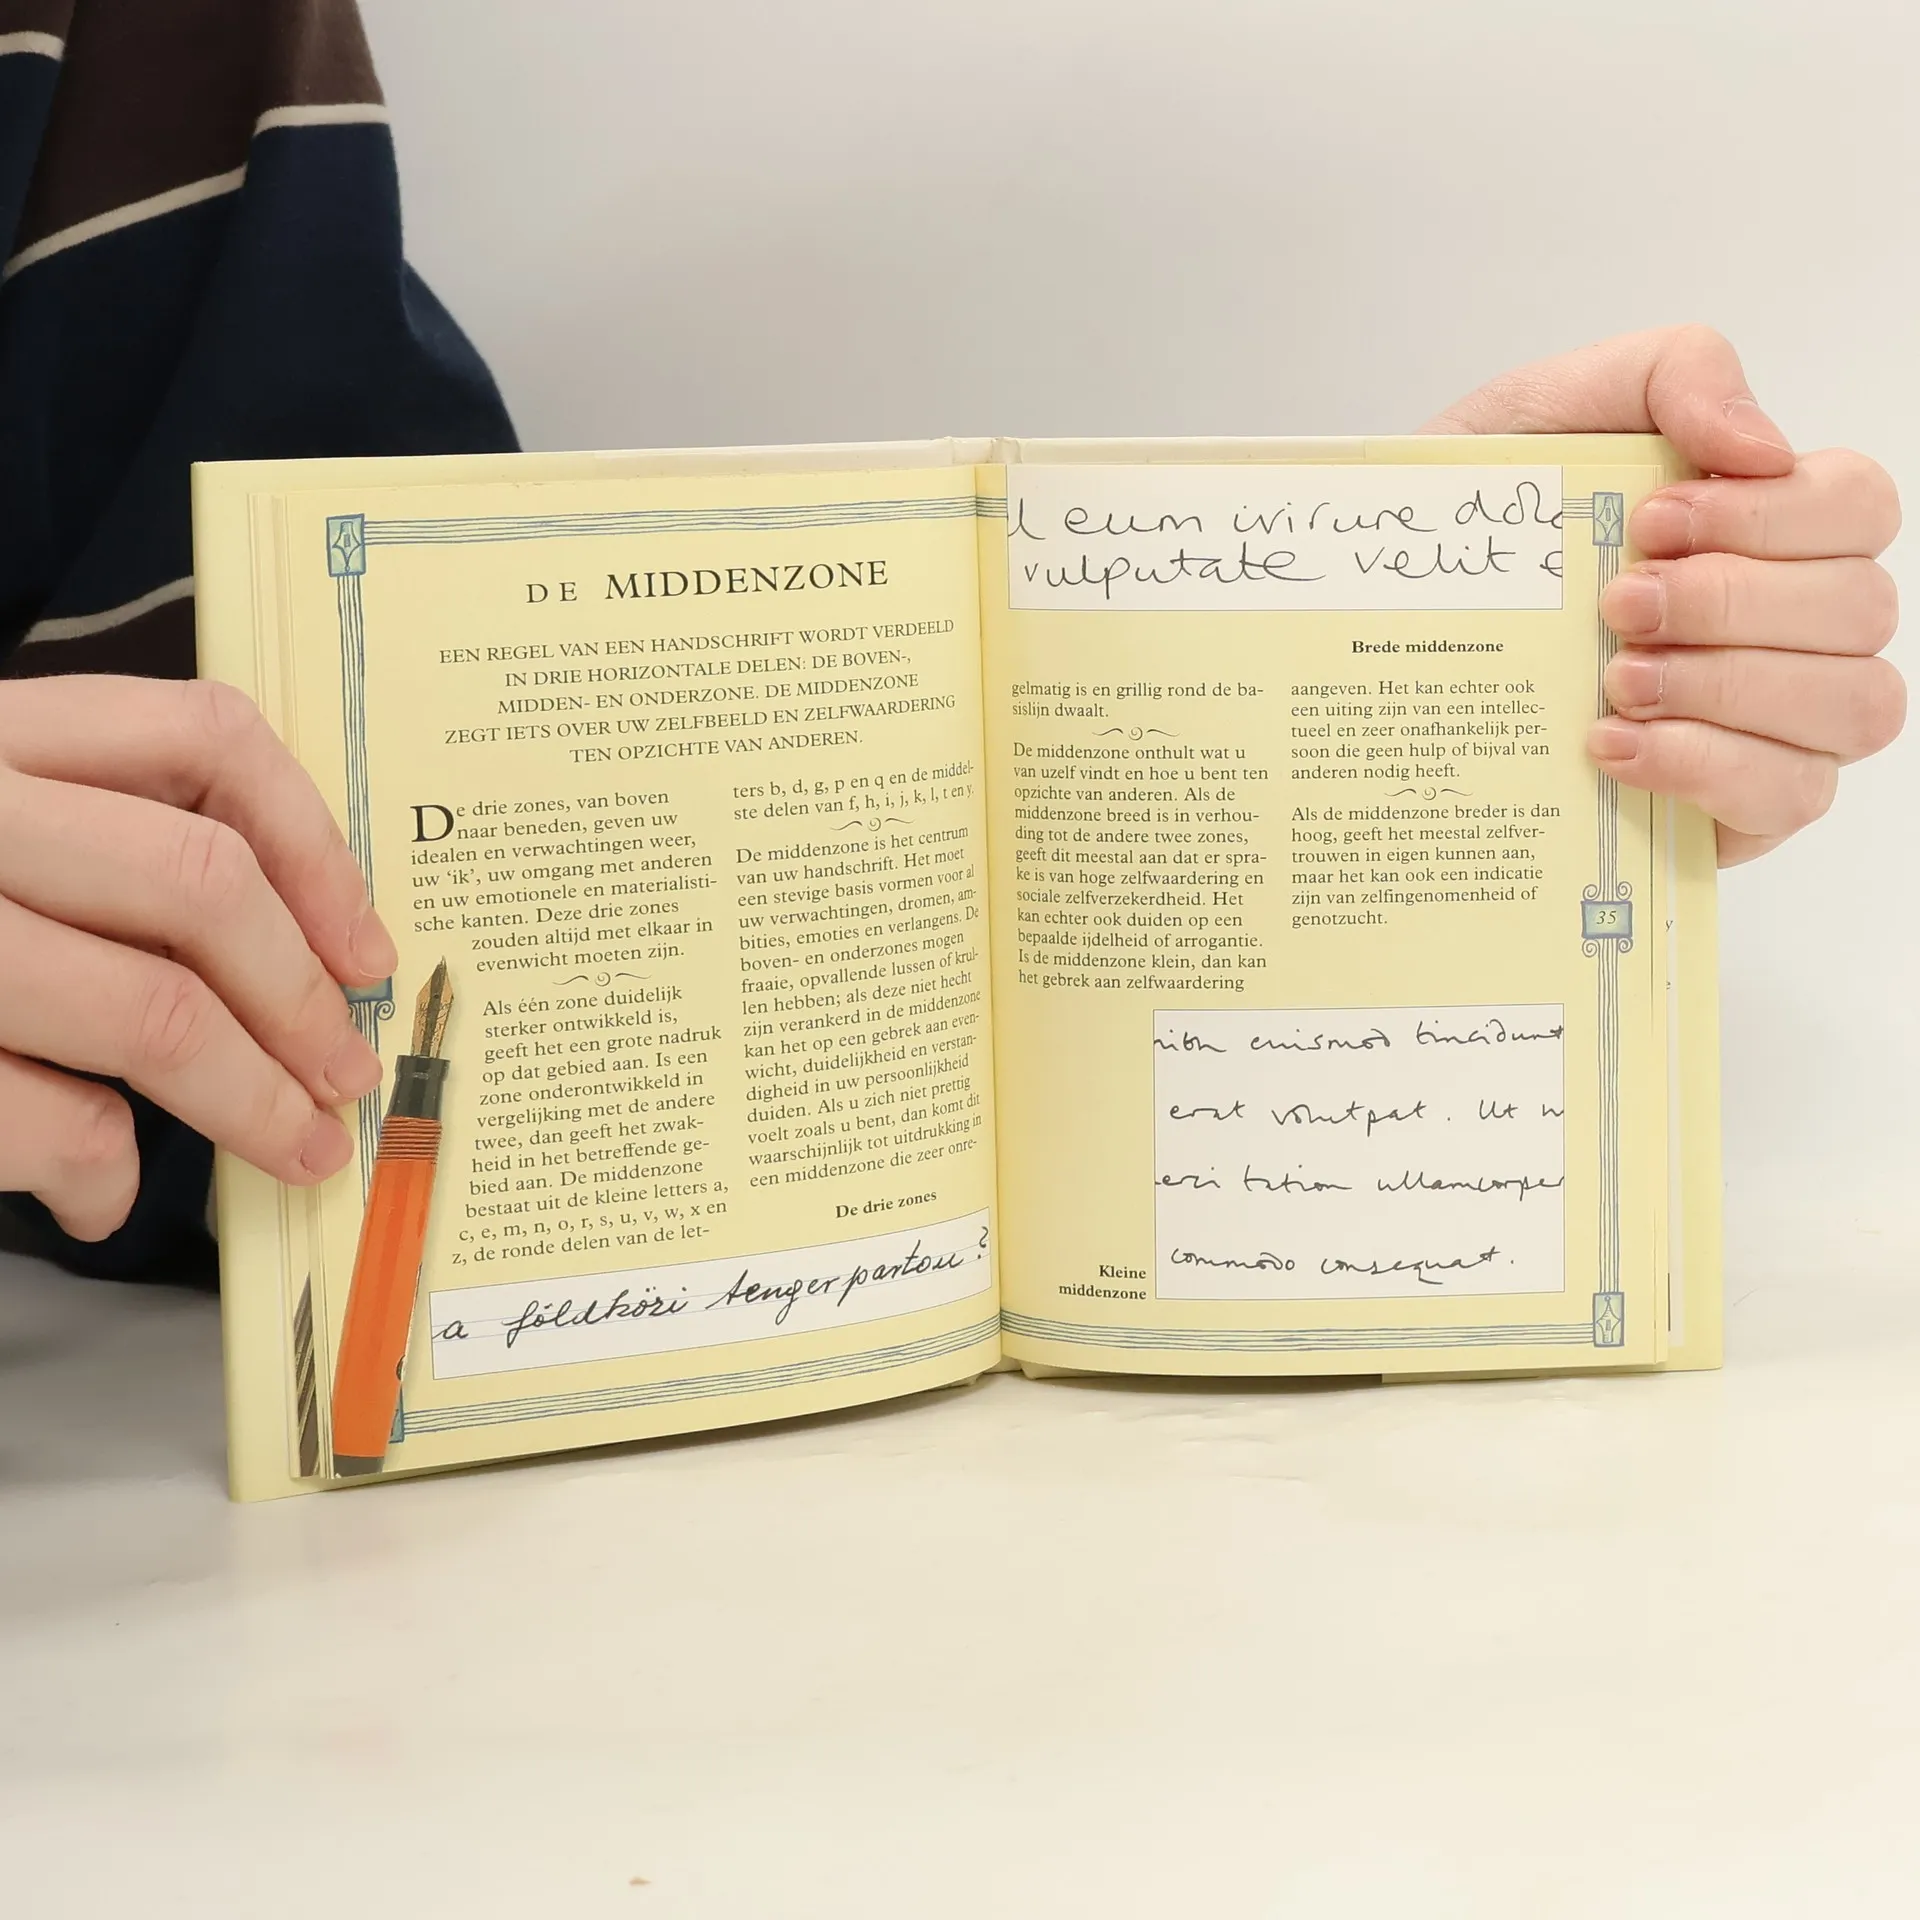 DE MIDDENZONE
EEN REGEL VAN EEN HANDSCHRIFT WORDT VERDEELD
IN DRIE HORIZONTALE DELEN: DE BOVEN-,
MIDDEN- EN ONDERZONE. DE MIDDENZONE
ZEGT IETS OVER UW ZELFBEELD EN ZELFWAARDERING
TEN OPZICHTE VAN ANDEREN.
De drie zones, van boven
naar beneden, geven uw
idealen en verwachtingen weer,
uw ‘ik’, uw omgang met anderen
en uw emotionele en materialisti-
sche kanten. Deze drie zones
zouden altijd met elkaar in
evenwicht moeten zijn.
Als één zone duidelijk
sterker ontwikkeld is,
geeft het een grote nadruk
op dat gebied aan. Is een
zone onderontwikkeld in
vergelijking met de andere
twee, dan geeft het zwak-
heid in het betreffende ge-
bied aan. De middenzone
bestaat uit de kleine letters a,
c, e, m, n, o, r, s, u, v, w, x en
z, de ronde delen van de let-
ters b, d, g, p en q en de middel-
ste delen van f, h, i, j, k, l, t en y.
De middenzone is het centrum
van uw handschrift. Het moet
een stevige basis vormen voor al
uw verwachtingen, dromen, am-
bities, emoties en verlangens. De
boven- en onderzones mogen
fraaie, opvallende lussen of krul-
len hebben; als deze niet hecht
zijn verankerd in de middenzone
kan het op een gebrek aan even-
wicht, duidelijkheid en verstan-
digheid in uw persoonlijkheid
duiden. Als u zich niet prettig
voelt zoals u bent, dan komt dit
waarschijnlijk tot uitdrukking in
een middenzone die zeer onre-
De drie zones
a földközi tengerparton?
l eum irirure dolo
vulputate velit e
Brede middenzone
gelmatig is en grillig rond de ba-
sislijn dwaalt.
De middenzone onthult wat u
van uzelf vindt en hoe u bent ten
opzichte van anderen. Als de
middenzone breed is in verhou-
ding tot de andere twee zones,
geeft dit meestal aan dat er spra-
ke is van hoge zelfwaardering en
sociale zelfverzekerdheid. Het
kan echter ook duiden op een
bepaalde ijdelheid of arrogantie.
Is de middenzone klein, dan kan
het gebrek aan zelfwaardering
aangeven. Het kan echter ook
een uiting zijn van een intellec-
tueel en zeer onafhankelijk per-
soon die geen hulp of bijval van
anderen nodig heeft.
Als de middenzone breder is dan
hoog, geeft het meestal zelfver-
trouwen in eigen kunnen aan,
maar het kan ook een indicatie
zijn van zelfingenomenheid of
genotzucht.
35
nibh euismod tincidunt
erat volutpat. Ut w
erci tation ullamcorper
commodo consequat.
Kleine
middenzone